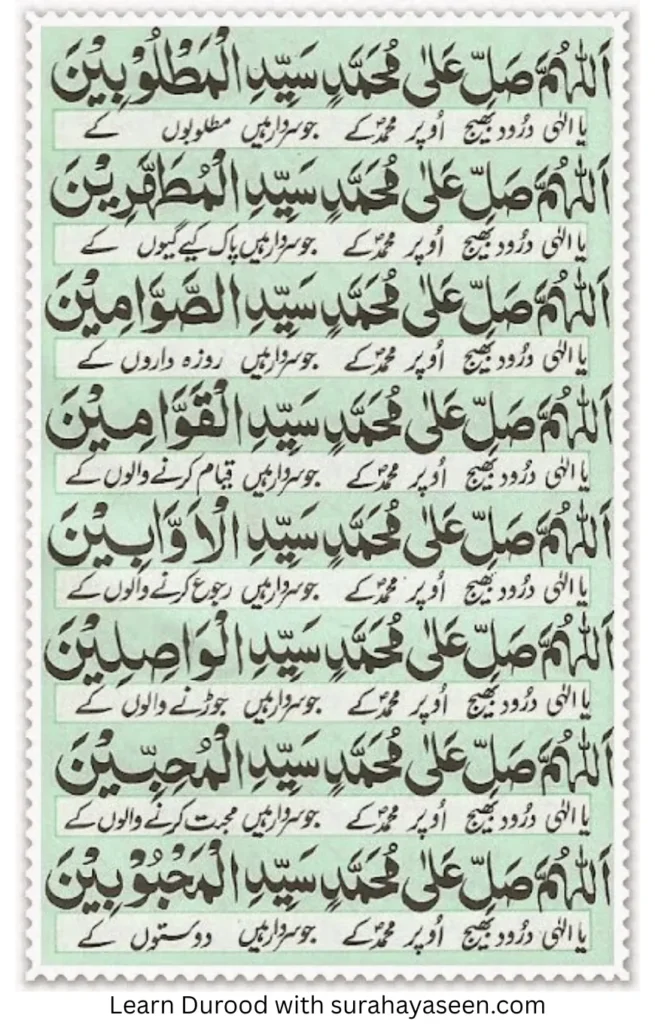 اَللّٰهُمَّ صَلِّ عَلٰى مُحَمَّدٍ سَيِّدِ الْمَطْلُوْبِيْنَ
یا الٰہی درُود بھیج اُوپر محمدؐ کے جو سردار ہیں مطلوبوں کے
اَللّٰهُمَّ صَلِّ عَلٰى مُحَمَّدٍ سَيِّدِ الْمُطَهَّرِيْنَ
یا الٰہی درُود بھیج اُوپر محمدؐ کے جو سردار ہیں پاک کیے گیوں کے
اَللّٰهُمَّ صَلِّ عَلٰى مُحَمَّدٍ سَيِّدِ الصَّوَّامِيْنَ
یا الٰہی درُود بھیج اُوپر محمدؐ کے جو سردار ہیں روزہ داروں کے
اَللّٰهُمَّ صَلِّ عَلٰى مُحَمَّدٍ سَيِّدِ الْقَوَّامِيْنَ
یا الٰہی درُود بھیج اُوپر محمدؐ کے جو سردار ہیں قیام کرنے والوں کے
اَللّٰهُمَّ صَلِّ عَلٰى مُحَمَّدٍ سَيِّدِ الْاَوَّابِيْنَ
یا الٰہی درُود بھیج اُوپر محمدؐ کے جو سردار ہیں رجوع کرنے والوں کے
اَللّٰهُمَّ صَلِّ عَلٰى مُحَمَّدٍ سَيِّدِ الْوَاصِلِيْنَ
یا الٰہی درُود بھیج اُوپر محمدؐ کے جو سردار ہیں جوڑنے والوں کے
اَللّٰهُمَّ صَلِّ عَلٰى مُحَمَّدٍ سَيِّدِ الْمُحِبِّيْنَ
یا الٰہی درُود بھیج اُوپر محمدؐ کے جو سردار ہیں محبت کرنے والوں کے
اَللّٰهُمَّ صَلِّ عَلٰى مُحَمَّدٍ سَيِّدِ الْمَحْبُوْبِيْنَ
یا الٰہی درُود بھیج اُوپر محمدؐ کے جو سردار ہیں دوستوں کے
Learn Durood with surahayaseen.com